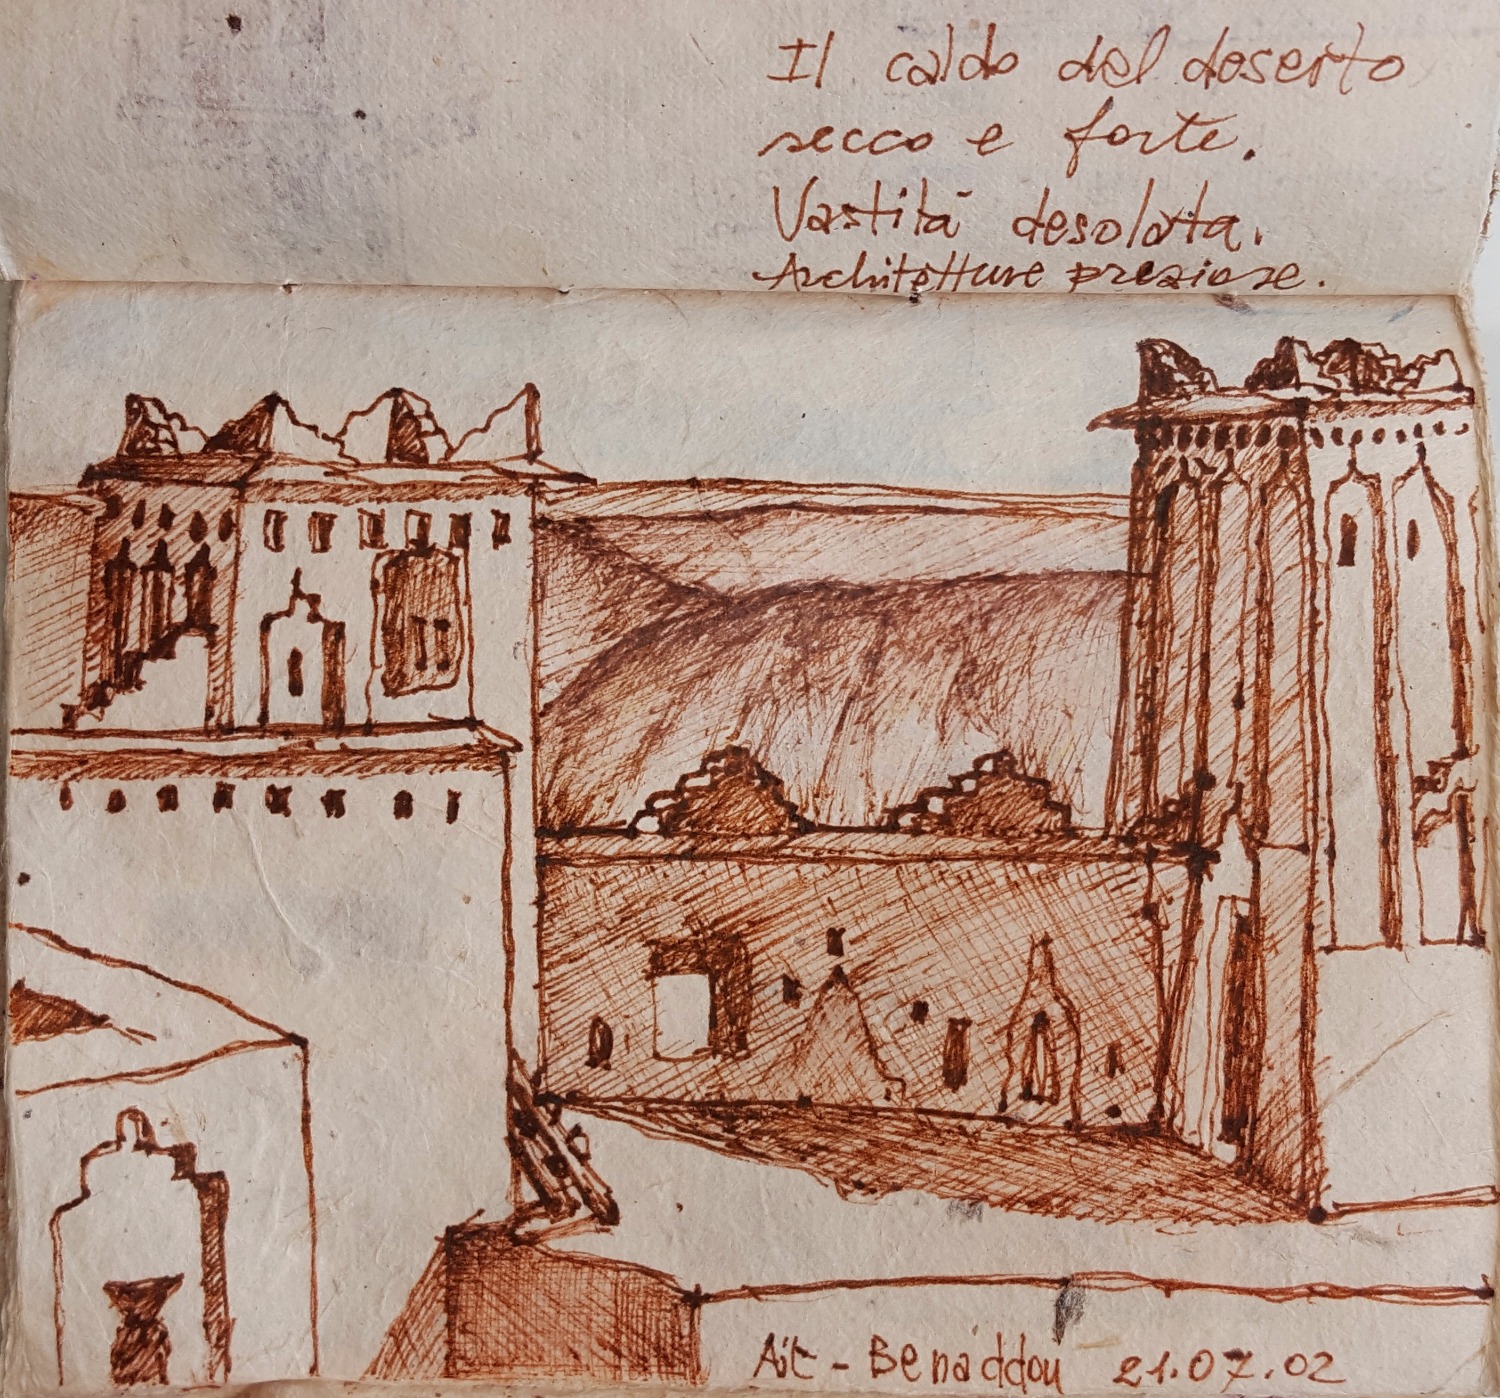 Il caldo del deserto
secco e forte.
Vastità desolata.
Architetture preziose.
Ait - Benaddou 21.07.02